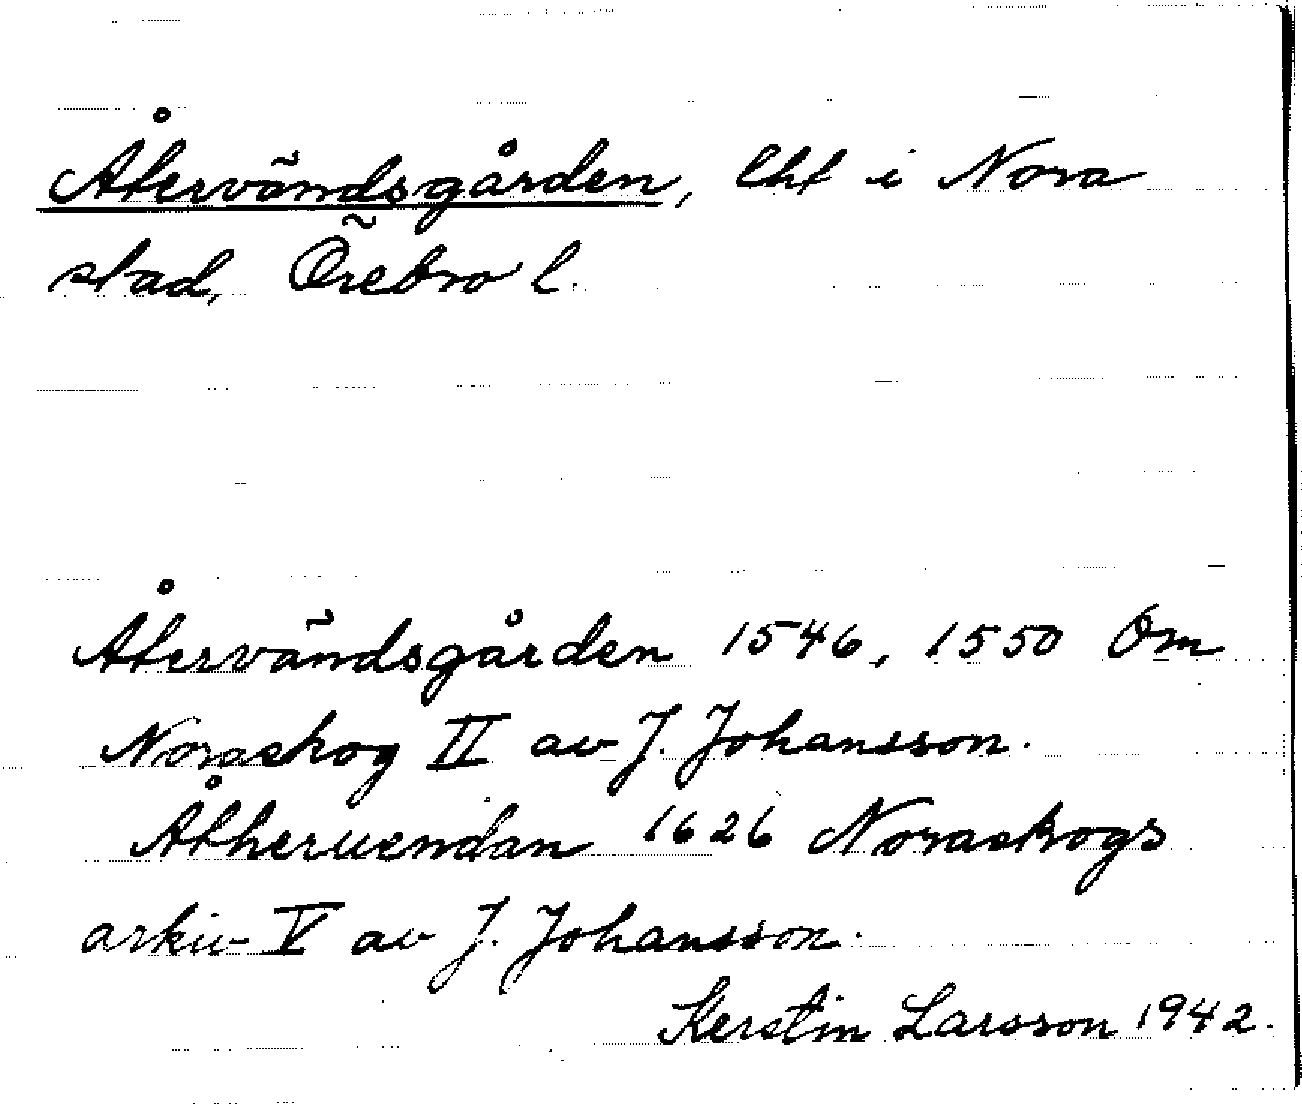 Återvändsgården, lht i Nora
stad, Örebro l.
Återvändsgården 1546, 1550 Om
Noraskog II av J. Johansson.
Åtheruendan 1626 Noraskogs
arkiv V av J. Johansson.
Kerstin Larsson 1942.